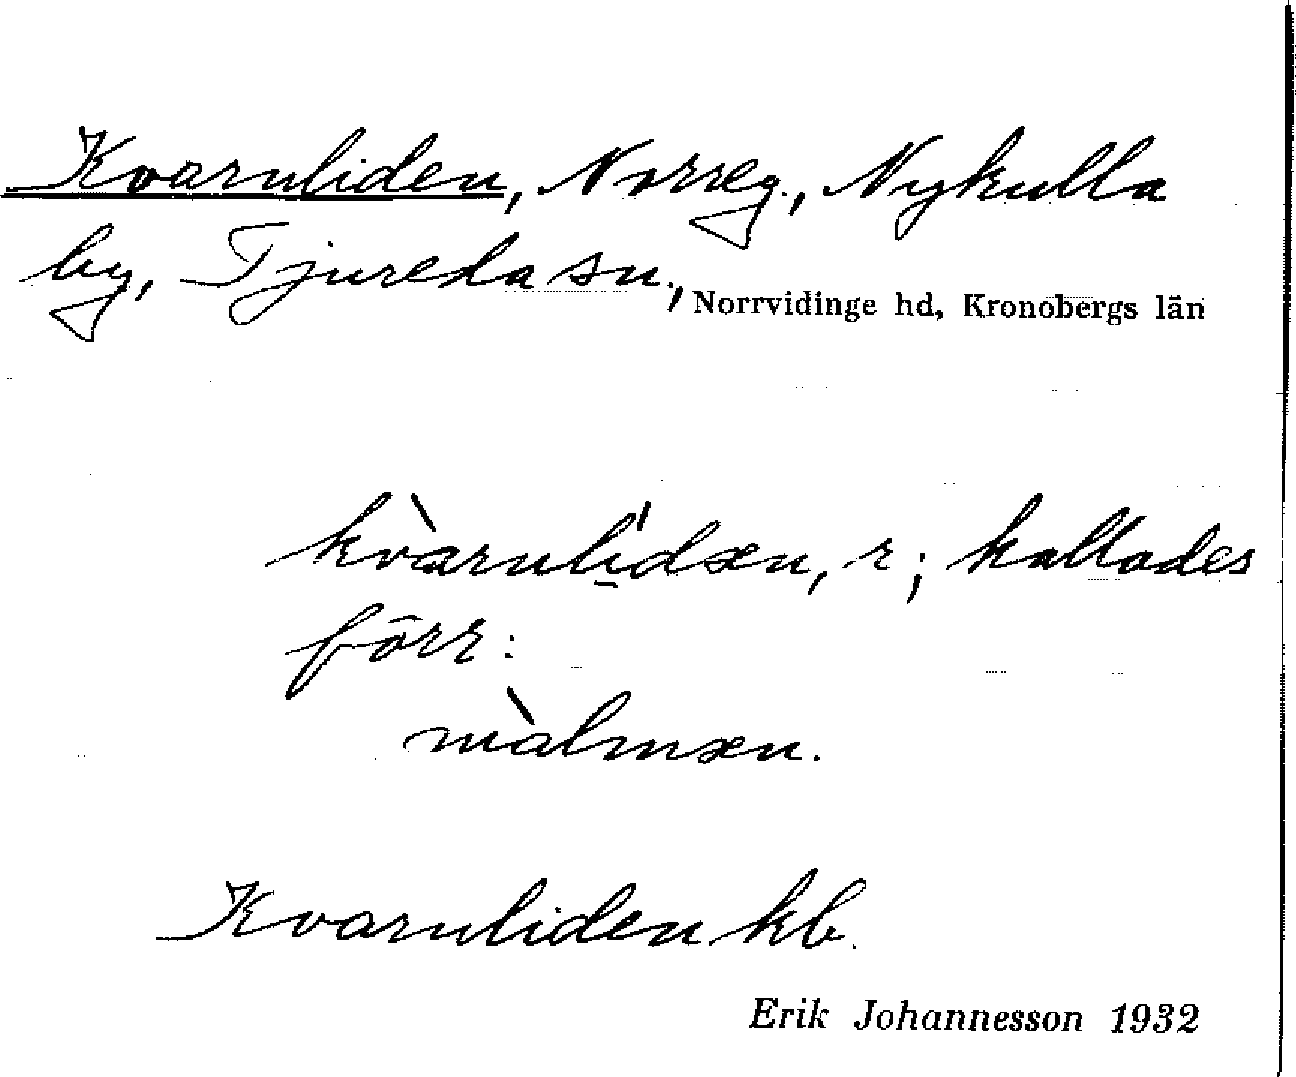 Kvarnliden, Norreg., Nykulla
by, Tjureda sn,
Norrvidinge hd, Kronobergs län
kvàrnlídæn, r; kallades
förr:
màlmæn.
Kvarnliden kb.
Erik Johannesson 1932